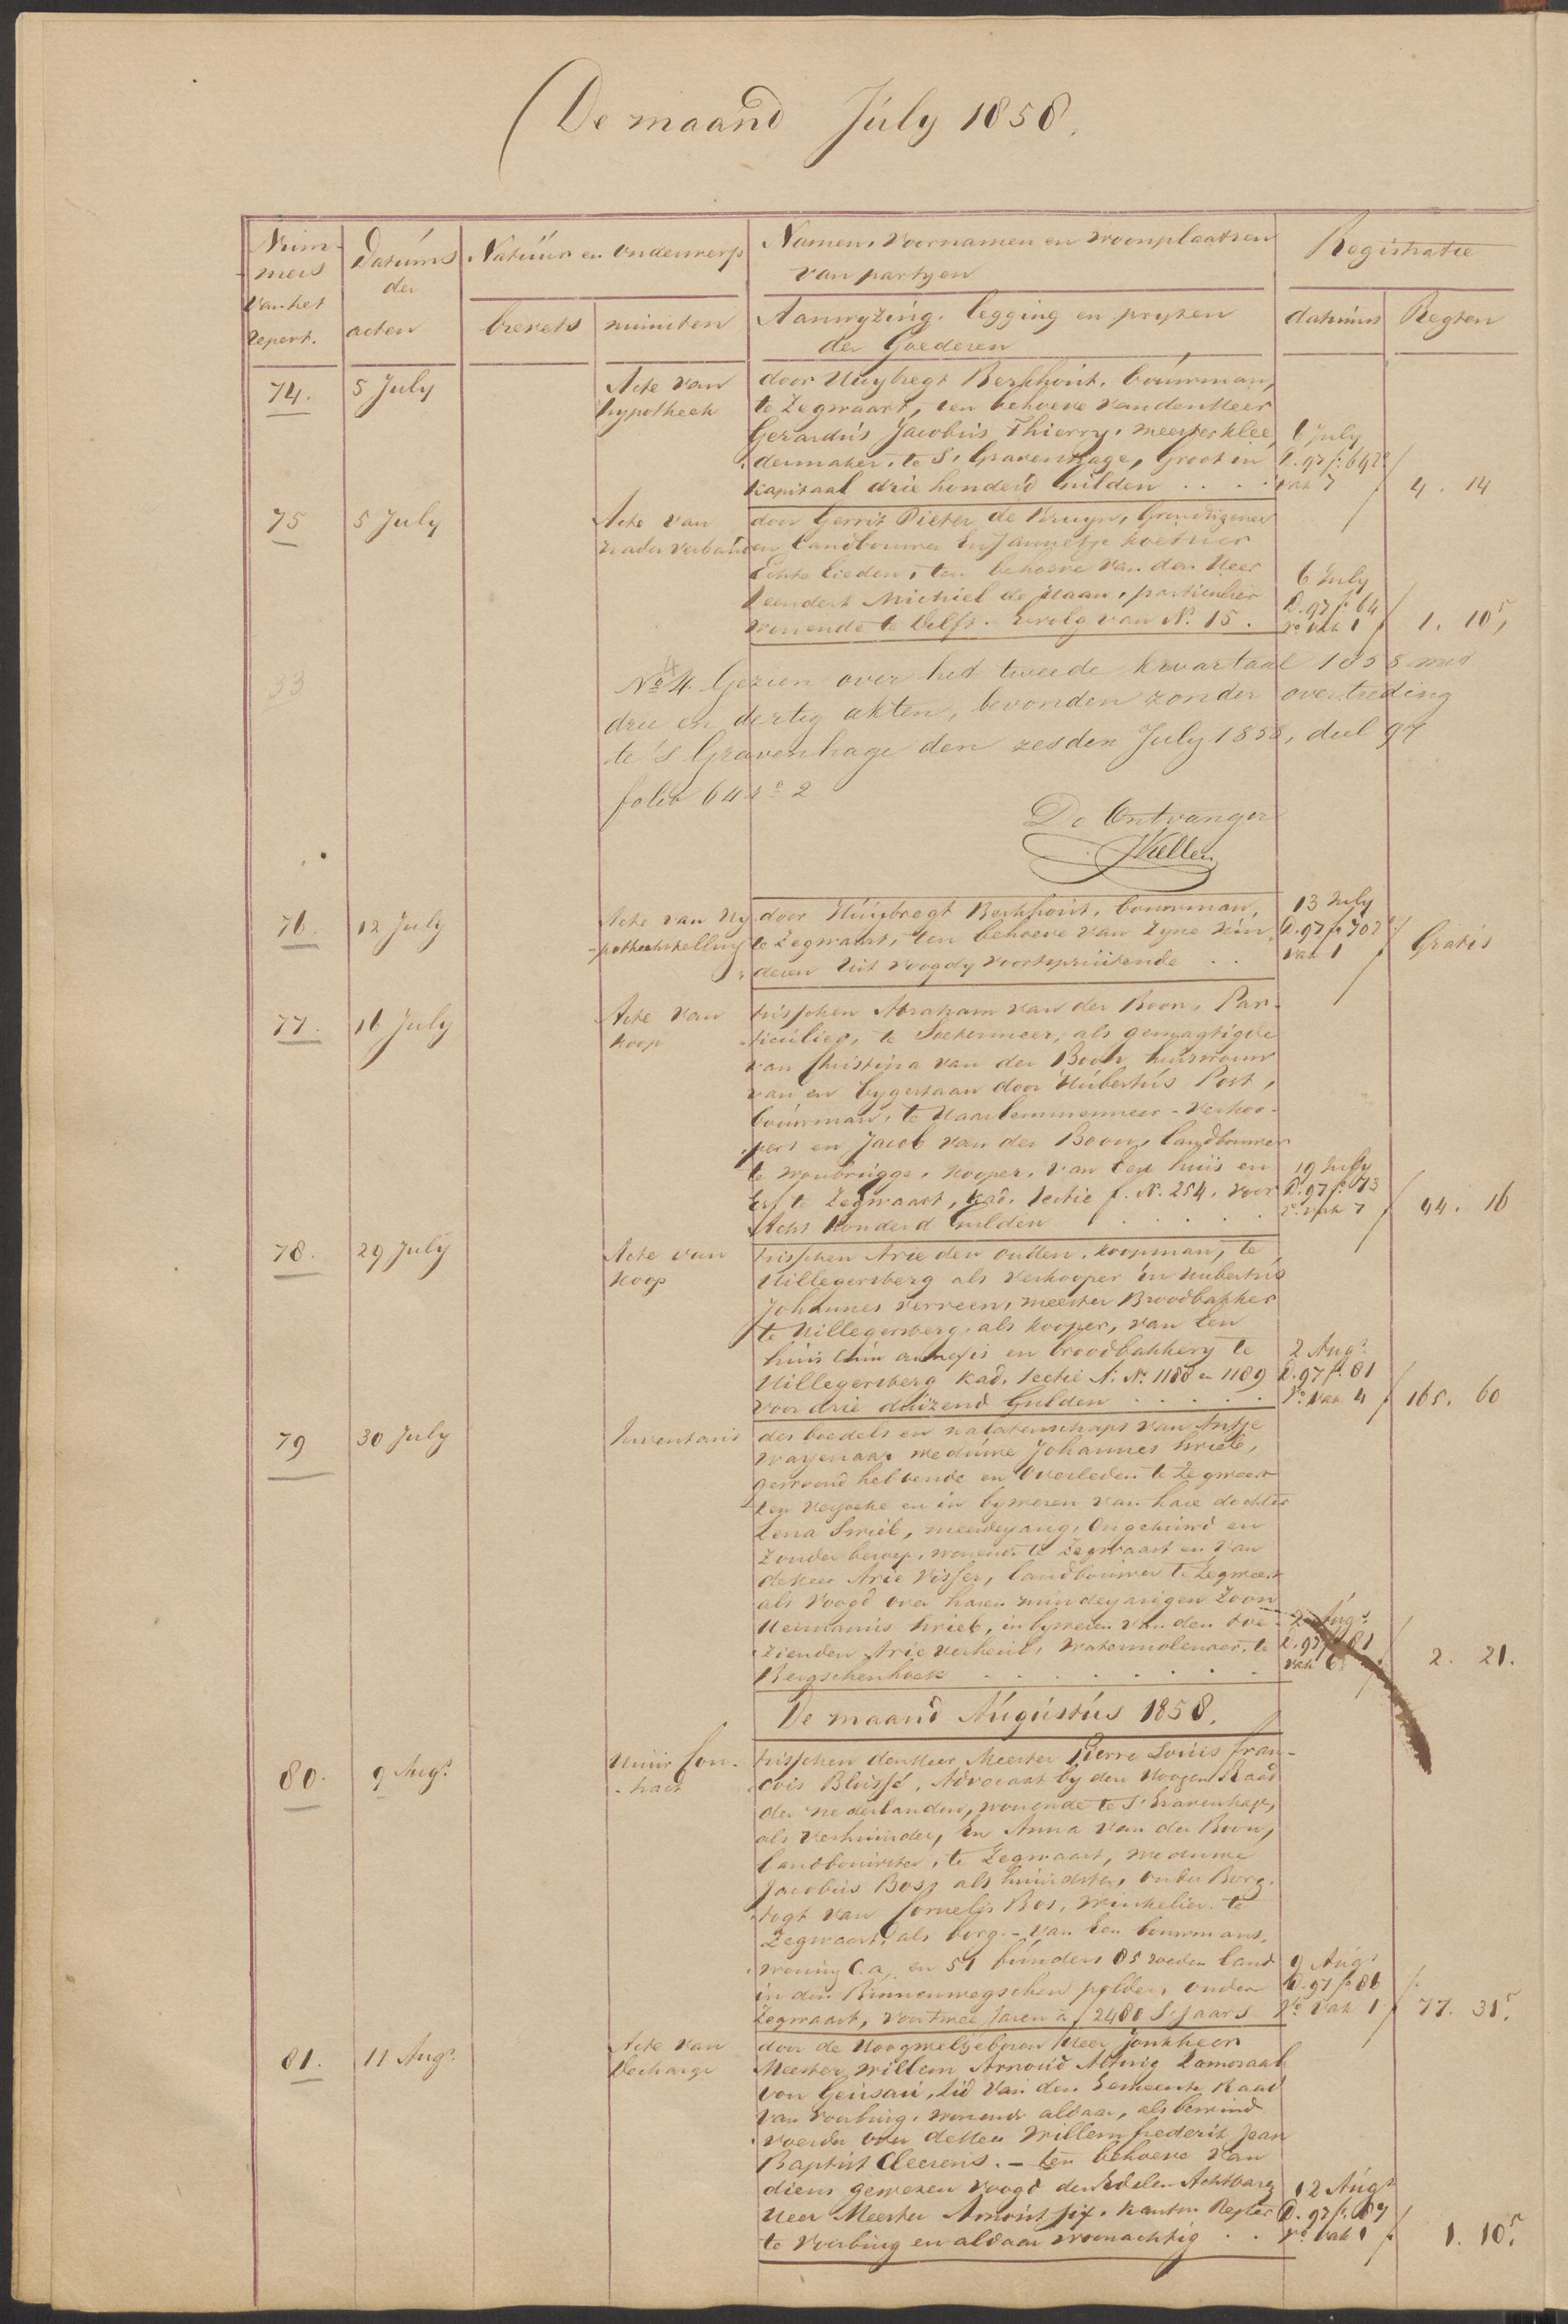 De maand July 1858.
Num- Datums Natuur en onderwerp Namen, voornamen en woonplaatsen Registratie
mers der van partyen
van het acten brevets minuten Aanwyzing, legging en pryzen datums Regten
Repert. der Goederen
74. 5 July Acte van door Huybregt Berkhout, bouwman,
hypotheek te Zegwaart, ten behoeve van den Heer
Gerardus Jacobus Thierry, meester klee 6 July
dermaker, te S'Gravenhage, Groot in D. 97 f. 64
Kapitaal drie honderd gulden . . . . vak 7 4. 14
75 5 July Acte van door Gerrit Pieter de Kruyn, Grondeigenaar
nader verband en landbouwer En Jannetje Koetsier
Echte lieden, ten behoeve van den Heer 6 July
Leendert Michiel de Haan, particulier D. 97 f. 64
wonende te Delft. Gevolg van No. 15. vo. vak 1 1. 10,
33
No 4 Gezien over het tweede kwartaal 1858 met
drie en dertig akten, bevonden zonder overtreding
te 's Gravenhage den zesden July 1858, deel 97
folio 64 2
De Ontvanger
76. 12 July Acte van Hy door Huybregt Berkhout, bouwman, 13 July
-potheekstelling te Zegwaart, ten behoeve van zyne kin D. 97 f. 70
deren Uit voogdy voortspruitende . . vak 1 Gratis
77. 16 July Acte van tusschen Abraham van der Boon, Par-
koop ticulier, te Soetermeer, als gemagtigde
van Christina van der Boon huisvrouw
van en bygestaan door Hubertus Post,
bouwman, te Haarlemmermeer - Verkoo-
pers en Jacob van der Boon, landbouwer
te Woubrugge, Kooper, van een huis en 19 July
Erf te Zegwaart, kad. sectie F. No. 254. voor D. 97 f. 73
Acht honderd gulden . . . . . vo. vak 7 44. 16
78. 29 July Acte van tusschen Arie den Ouden, koopman, te
Koop Hillegersberg als Verkooper En Hubertus
Johannes Verveen, meester Broodbakker
te Hillegersberg, als kooper, van een
huis tuin annexis en broodbakkery te 2 Augs.
Hillegersberg kad. sectie A. No. 1188 en 1189 D. 97 f. 81
voor drie duizend Gulden . . . . . vo. vak 4 165. 60
79 30 July Inventaris des boedels en nalatenschaps van Antje
Wagenaar weduwe Johannes Kriele,
gewoond hebbende en Overleden te Zegwaart
ten verzoeke en in bywezen van hare dochter
Lena Kriel, meerderjarig, Ongehuwd en
Zonder beroep, wonende te Zegwaart en van
den Heer Arie Visser, landbouwer te Zegwaart
als voogd over haren minderjarigen Zoon
Hermanus Kriel, in bywezen van den toe- 2 Augs.
zienden Arie Verheul, Watermolenaar, te D. 97 f. 81
Bergschenhoek . . . . . . . . vak 6 2. 21.
De maand Augustus 1858.
80. 9 Augs. Huur Con- tusschen den Heer Meester Pierre Louis Fran-
-tract cois Blussé, Advocaat by den Hoogen Raad
der Nederlanden, wonende te S'Gravenhage,
als Verhuurder, En Anna van der Boon,
landbouwster, te Zegwaart, weduwe
Jacobus Bos, als huurdster, onder Borg-
togt van Cornelis Bos, Winkelier te
Zegwaart, als borg. - van Een bouwmans,
woning C.a. en 51 bunders 85 roeden land 9 Augs.
in den Binnenwegschen polder, onder D. 97 f. 86
Zegwaart, voor twee Jaren à f 2480 S'jaars vo. vak 1 77. 31
81. 11 Augs. Acte van door de Hoogwelgeboren Heer Jonkheer
Decharge Meester Willem Arnoud Alting Lamoraal
von Geusau, Lid van den Gemeente Raad
van Voorburg, wonende aldaar, als bewind
voerder over den Heer Willem Frederik Jean
Baptist Cleerens. - ten behoeve van
diens gewezen voogd den Edelen Achtbaren 12 Augs.
Heer Meester Arnout Six, Kanton Regter D. 97 f. 87
te Voorburg en aldaar woonachtig . . vo. vak 1 1. 10